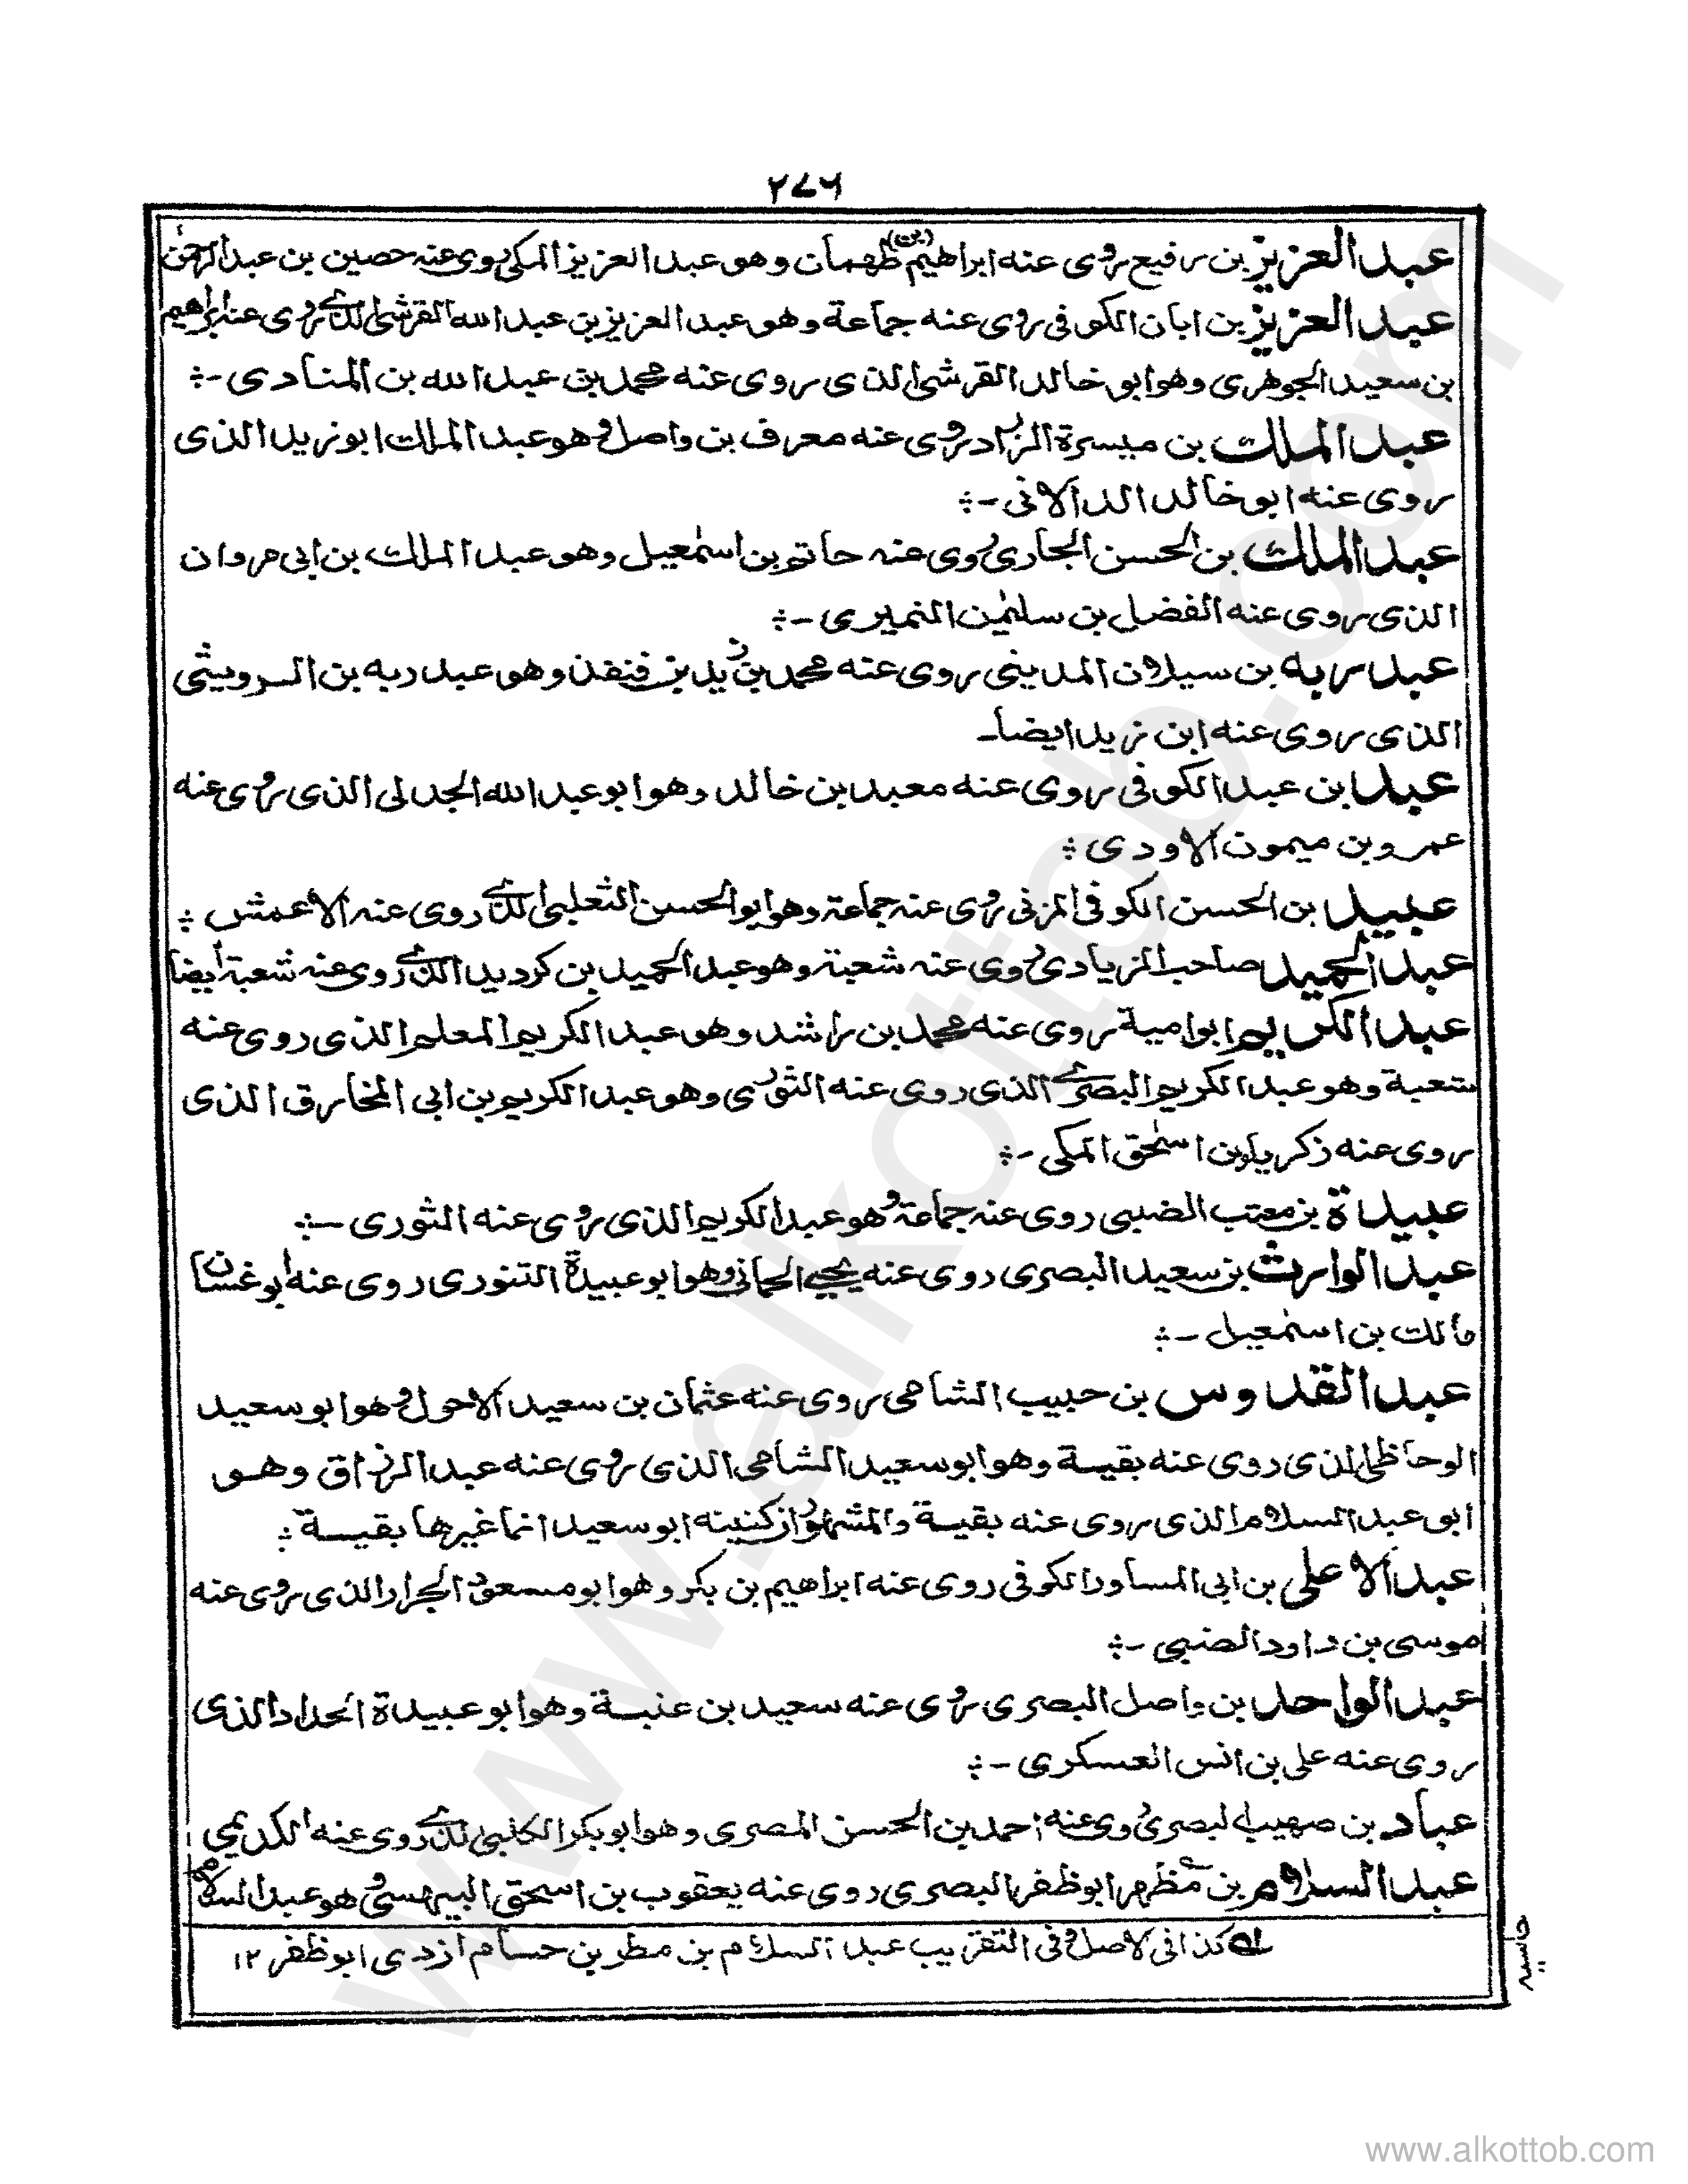 ٢٧٦
عبد العزيز بن رفيع روى عنه ابراهيم (بن) طهمان وهو عبد العزيز المكى روى عنه حصين بن عبد الرحمٰن
عبد العزيز بن ابان الكوفى روى عنه جماعة وهو عبد العزيز بن عبد الله القرشى الذى روى عنه ابراهيم
بن سعيد الجوهرى وهو ابو خالد القرشى الذى روى عنه محمد بن عبيد الله بن المنادى -:
عبد الملك بن ميسرة الزراد روى عنه معرف بن واصل وهو عبد الملك ابو زيد الذى
روى عنه ابو خالد الدالانى -:
عبد الملك بن الحسن الجارى روى عنه حاتم بن اسمٰعيل وهو عبد الملك بن ابى مروان
الذى روى عنه الفضل بن سليمٰن النميرى -:
عبد ربه بن سيلان المدينى روى عنه محمد بن زيد بن قنفذ وهو عبد ربه بن الرويثى
الذى روى عنه ابن زيد ايضا-
عبد بن عبد الكوفى روى عنه معبد بن خالد وهو ابو عبد الله الجدلى الذى روى عنه
عمرو بن ميمون الاودى :
عبيد بن الحسن الكوفى المزنى روى عنه جماعة وهو ابو الحسن الثعلبى الذى روى عنه الاعمش :
عبد الحميد صاحب الزيادى روى عنه شعبة وهو عبد الحميد بن كرديد الذى روى عنه شعبة ايضا
عبد الكريم ابو امية روى عنه محمد بن راشد وهو عبد الكريم المعلم الذى روى عنه
شعبة وهو عبد الكريم البصرى الذى روى عنه الثورى وهو عبد الكريم بن ابى المخارق الذى
روى عنه زكريا بن اسحٰق المكى -:
عبيدة بن معتب الضبى روى عنه جماعة وهو عبد الكريم الذى روى عنه الثورى -:
عبد الوارث بن سعيد البصرى روى عنه يحيى الحمانى وهو ابو عبيدة التنورى روى عنه ابو غسان
مالك بن اسمٰعيل -:
عبد القدوس بن حبيب الشامى روى عنه عثمان بن سعيد الاحول وهو ابو سعيد
الوحاظى الذى روى عنه بقية وهو ابو سعيد الشامى الذى روى عنه عبد الرزاق وهو
ابو عبد السلام الذى روى عنه بقية والمشهور ان كنيته ابو سعيد انما غيرها بقية :
عبد الاعلى بن ابى المساور الكوفى روى عنه ابراهيم بن بكر وهو ابو مسعود الجرار الذى روى عنه
موسى بن داود الضبى -:
عبد الواحد بن واصل البصرى روى عنه سعيد بن عنبسة وهو ابو عبيدة الحداد الذى
روى عنه على بن انس العسكرى -:
عباد بن صهيب البصرى روى عنه احمد بن الحسن المصرى وهو ابو بكر الكليبى الذى روى عنه الكديمى
عبد السلام بن مظهر ابو ظفر البصرى روى عنه يعقوب بن اسحٰق البيهسى وهو عبد السلام
له كذا فى الاصل وفى التقريب عبد السلام بن مطر بن حسام ازدى ابو ظفر ١٢
حاشيہ
www.alkottob.com
www.alkottob.com